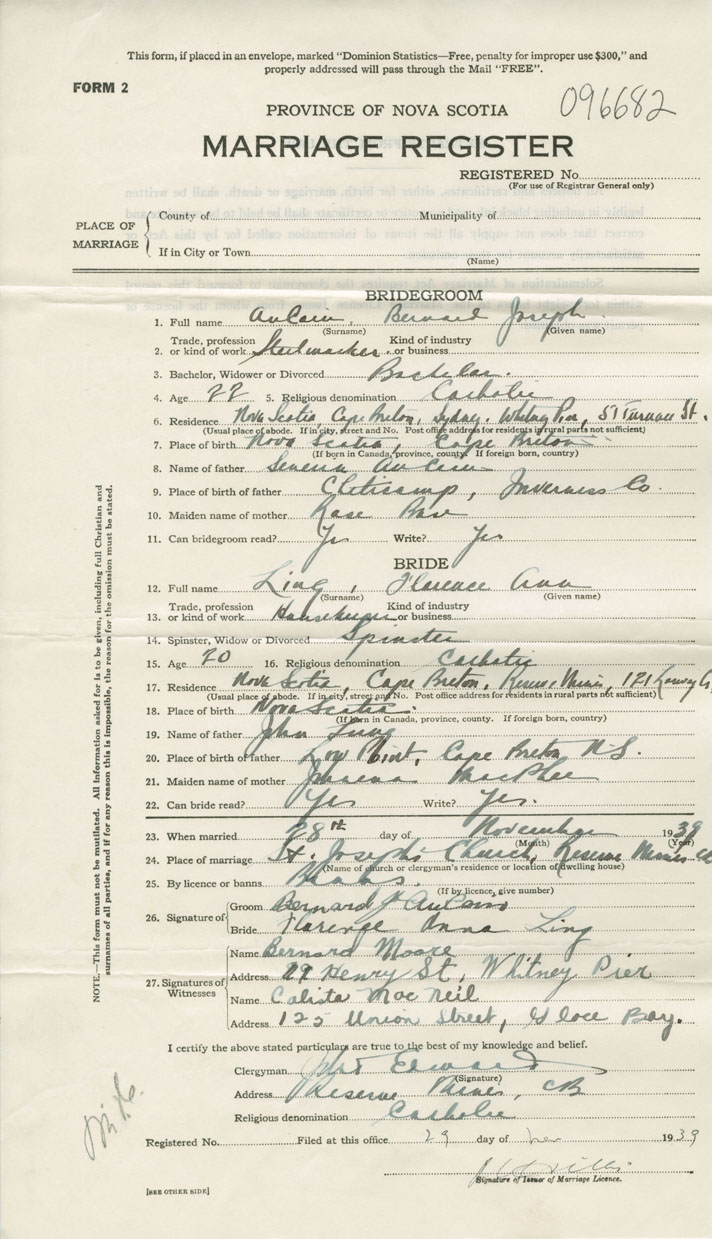 This form, if placed in an envelope, marked "Dominion Statistics—Free, penalty for improper use $300," and
properly addressed will pass through the Mail "FREE".
FORM 2
096682
PROVINCE OF NOVA SCOTIA
MARRIAGE REGISTER
REGISTERED No.
(For use of Registrar General only)
PLACE OF MARRIAGE
County of
Municipality of
If in City or Town
(Name)
BRIDEGROOM
1. Full name AuCoin, Bernard Joseph
(Surname) (Given name)
Trade, profession Kind of industry
2. or kind of work Steelworker or business
3. Bachelor, Widower or Divorced Bachelor.
4. Age 22 5. Religious denomination Catholic
6. Residence Nova Scotia, Cape Breton, Sydney, Whitney Pier, 57 St.
(Usual place of abode. If in city, street and No. Post office address for residents in rural parts not sufficient)
7. Place of birth Nova Scotia, Cape Breton
(If born in Canada, province, county. If foreign born, country)
8. Name of father AuCoin
9. Place of birth of father Cheticamp, Inverness Co.
10. Maiden name of mother Rose
11. Can bridegroom read? Yes Write? Yes
BRIDE
12. Full name Ling, Florence Ann
(Surname) (Given name)
Trade, profession Kind of industry
13. or kind of work Housekeeper or business
14. Spinster, Widow or Divorced Spinster
15. Age 20 16. Religious denomination Catholic
17. Residence Nova Scotia, Cape Breton, Reserve Mines, 121
(Usual place of abode. If in city, street and No. Post office address for residents in rural parts not sufficient)
18. Place of birth Nova Scotia.
(If born in Canada, province, county. If foreign born, country)
19. Name of father John Ling
20. Place of birth of father Low Point, Cape Breton N.S.
21. Maiden name of mother MacPhee
22. Can bride read? Yes Write? Yes.
23. When married 28th day of November 1939
(Month) (Year)
24. Place of marriage St. Joseph's Church, Reserve Mines CB
(Name of church or clergyman's residence or location of dwelling house)
25. By licence or banns Banns.
(If by licence, give number)
26. Signature of
Groom Bernard J. AuCoin
Bride Florence Anna Ling
27. Signatures of Witnesses
Name Bernard Moore
Address 29 Henry St, Whitney Pier
Name Calista MacNeil
Address 125 Union Street, Glace Bay.
I certify the above stated particulars are true to the best of my knowledge and belief.
Clergyman
(Signature)
Address Reserve Mines, CB
Religious denomination Catholic
Registered No. Filed at this office 29 day of Nov 1939
Signature of Issuer of Marriage Licence.
[SEE OTHER SIDE]
NOTE.—This form must not be mutilated. All information asked for is to be given, including full Christian and
surnames of all parties, and if for any reason this is impossible, the reason for the omission must be stated.